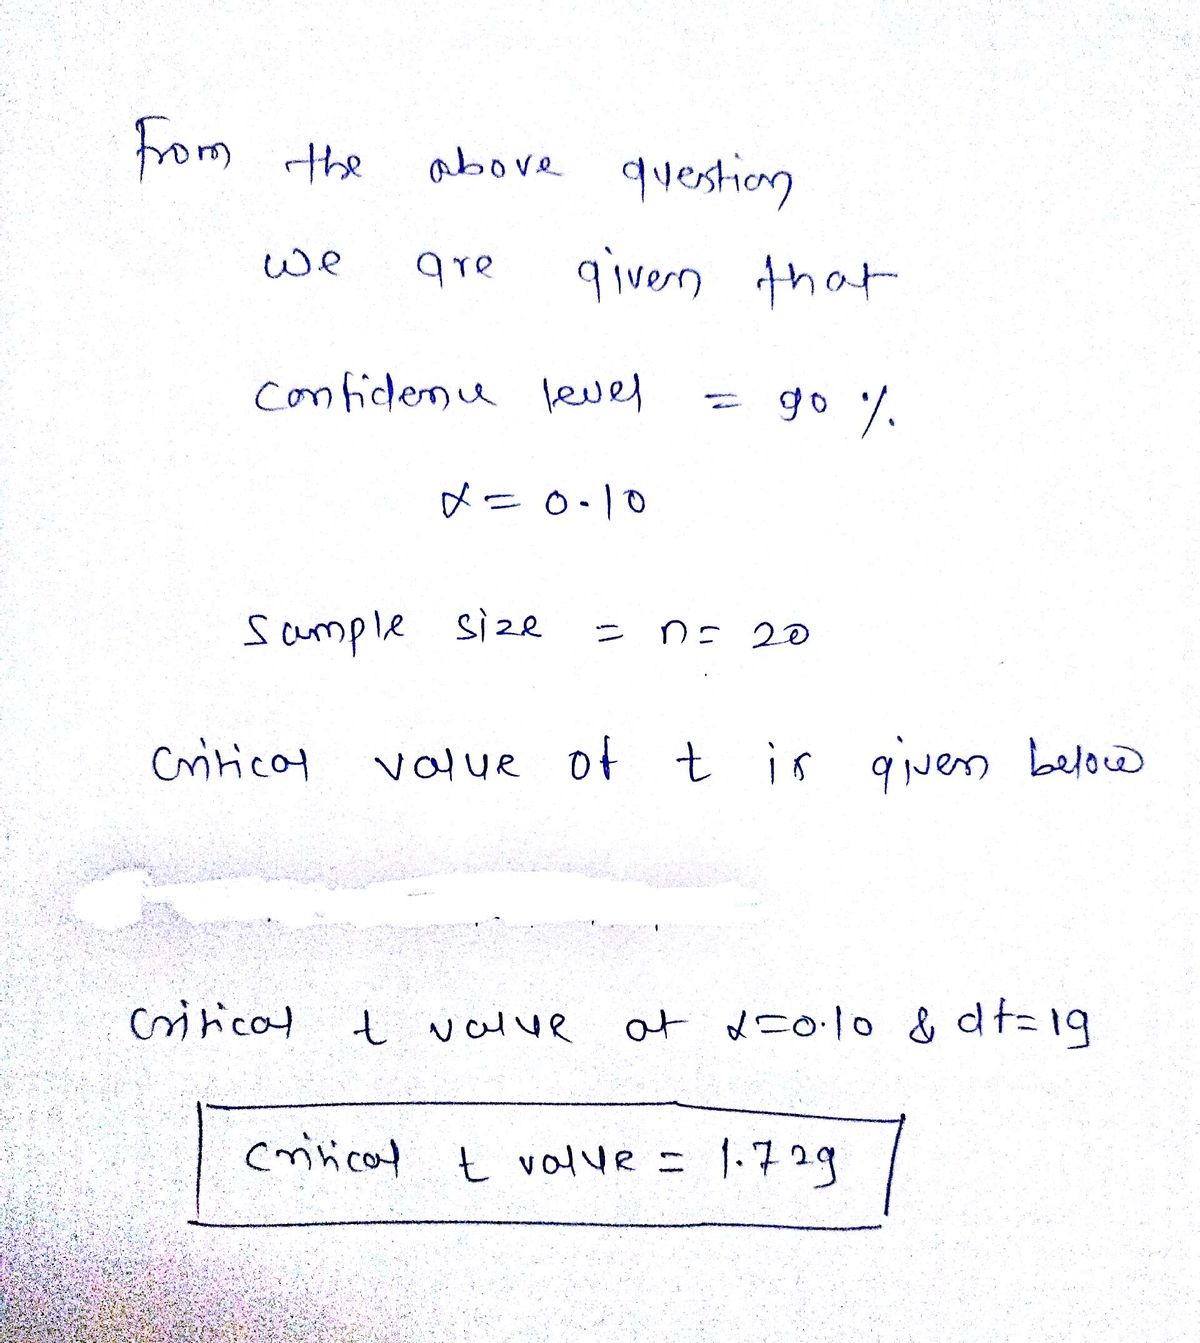 From the above question
we are given that
confidence level = 90 %
α = 0.10
Sample size = n = 20
Critical value of t is given below
Critical t value at α=0.10 & df=19
Critical t value = 1.729